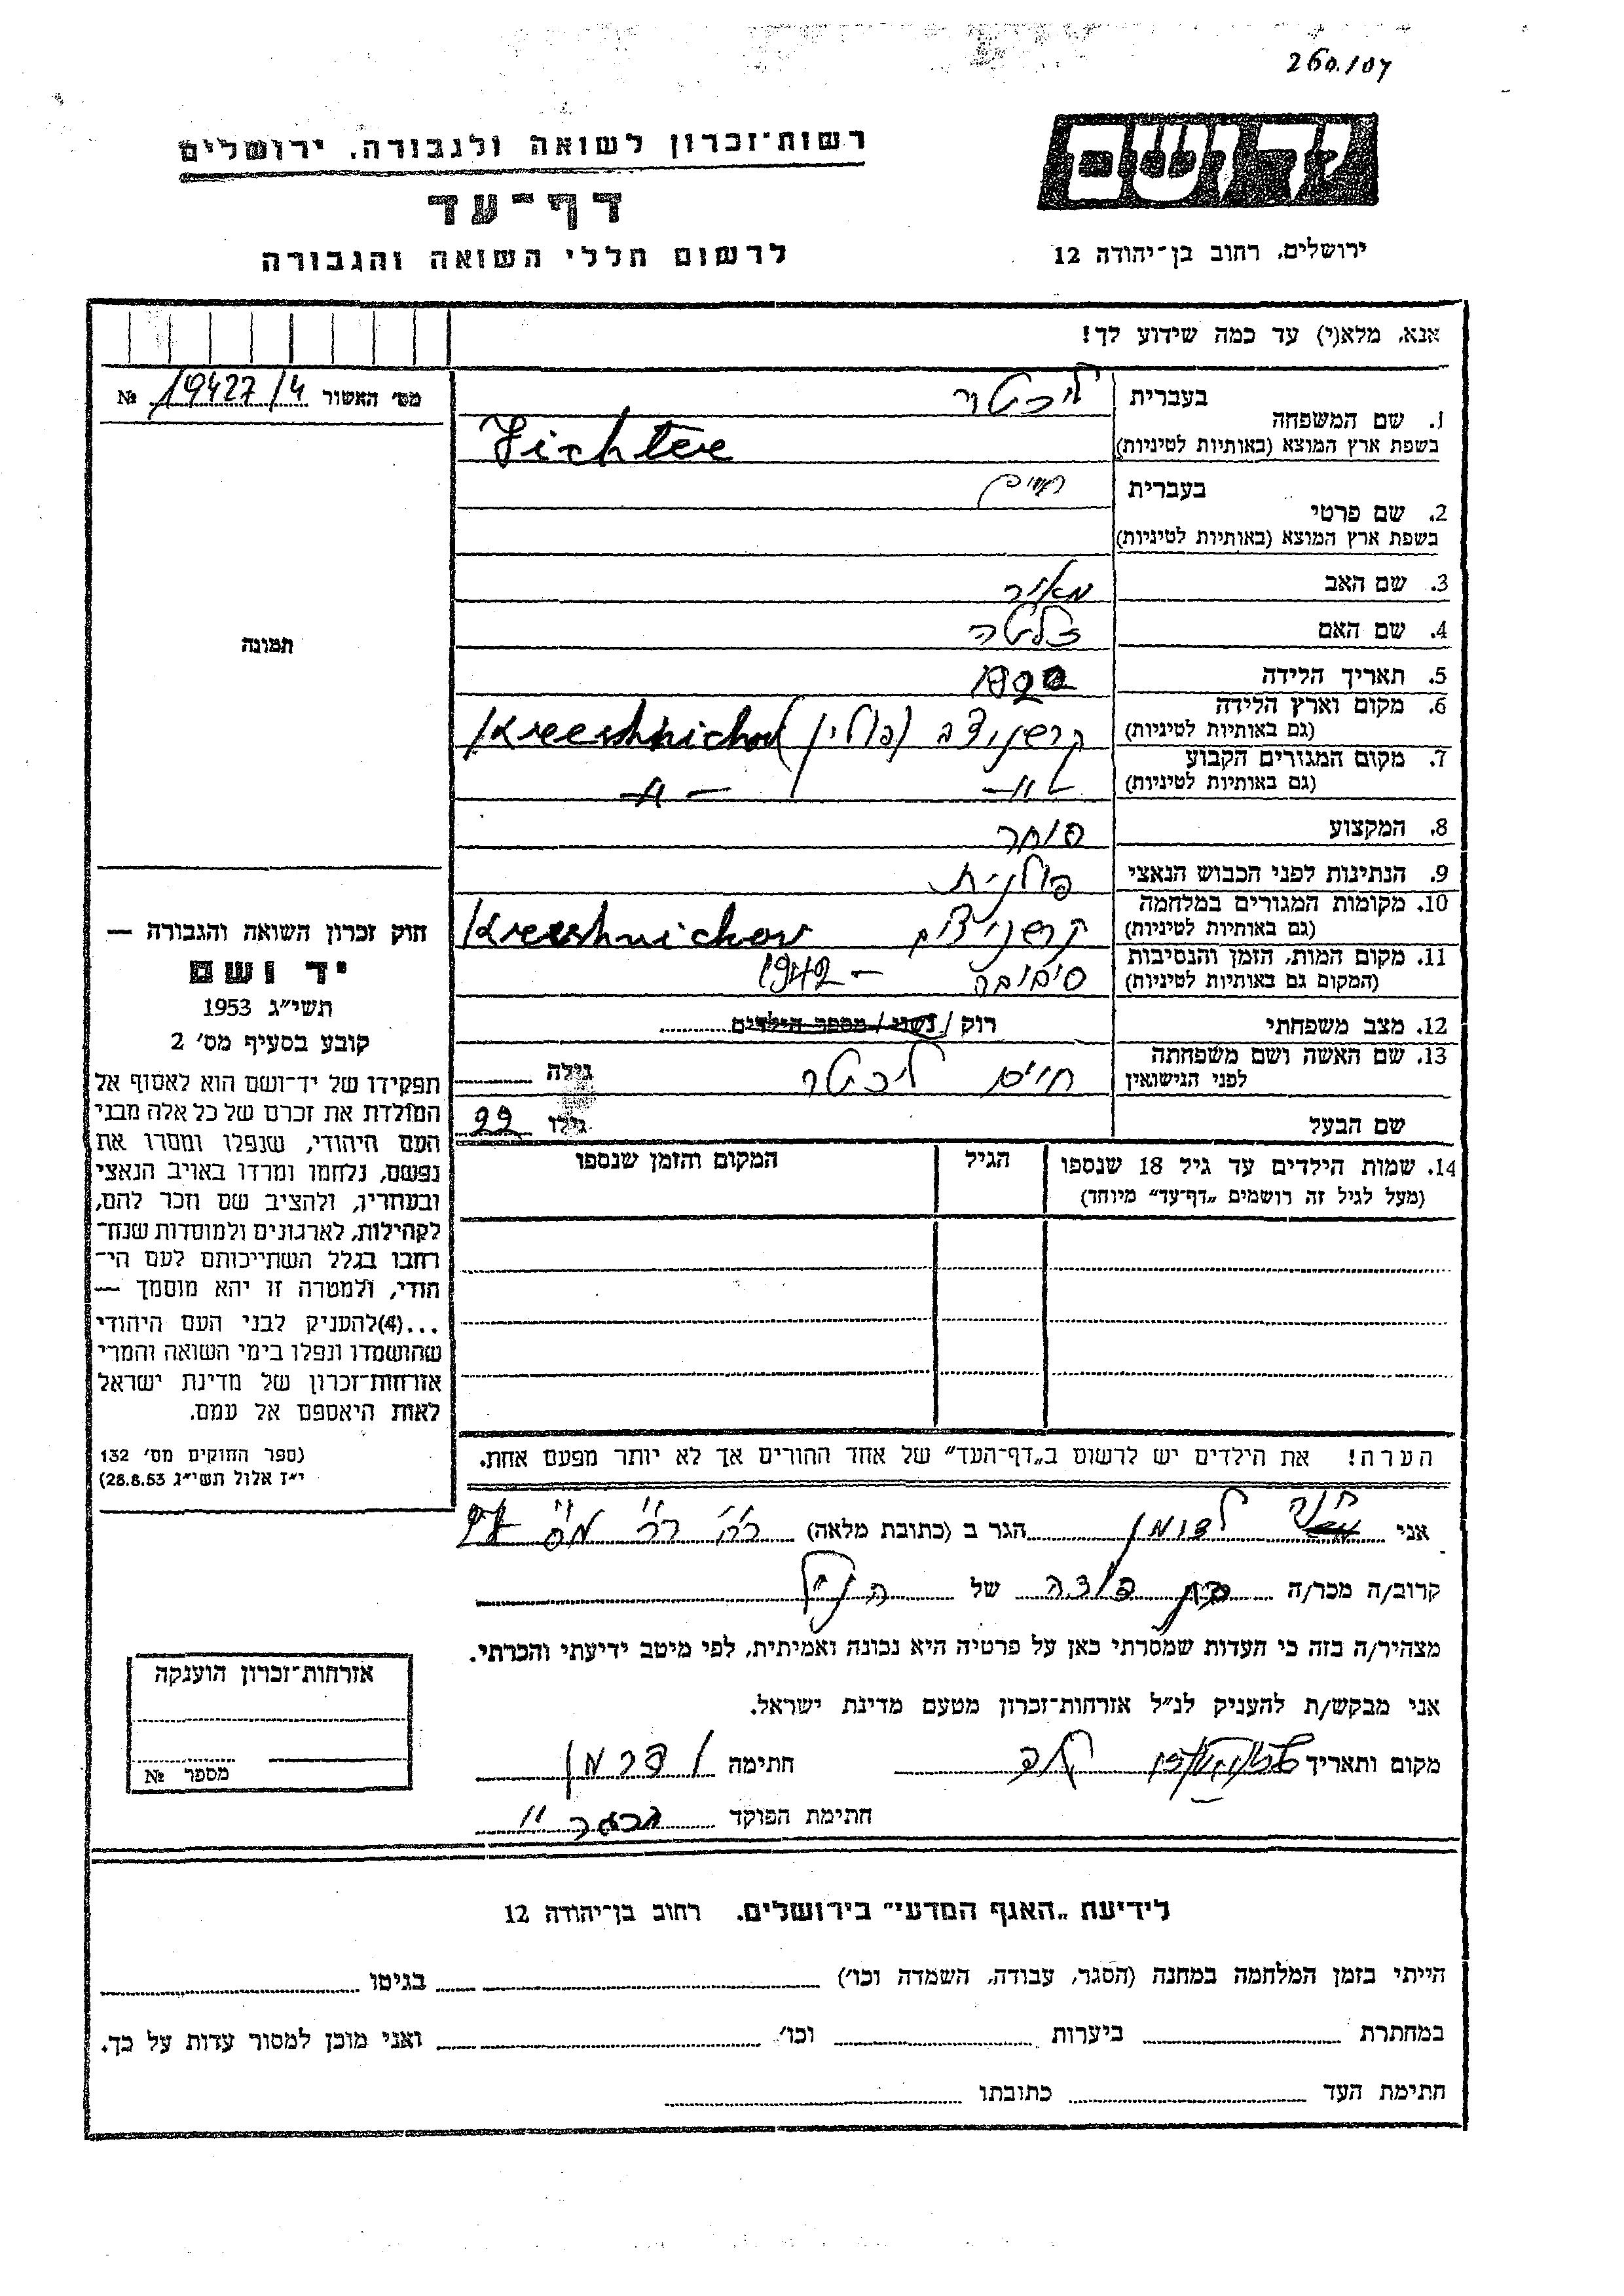 260/107
יד ושם
רשות־זכרון לשואה ולגבורה. ירושלים
דף־עד
לרשום חללי השואה והגבורה
ירושלים. רחוב בן־יהודה 12
אנא. מלא(י) עד כמה שידוע לך!
מס׳ האשור 19427/4 №
תמונה
1. שם המשפחה
בעברית ליכטר
בשפת ארץ המוצא (באותיות לטיניות)
2. שם פרטי
בעברית חיים
בשפת ארץ המוצא (באותיות לטיניות)
3. שם האב מאיר
4. שם האם זלטה
5. תאריך הלידה
6. מקום וארץ הלידה (פולין)
(גם באותיות לטיניות)
7. מקום המגורים הקבוע —״— —״—
(גם באותיות לטיניות)
8. המקצוע סוחר
9. הנתינות לפני הכבוש הנאצי פולנית
10. מקומות המגורים במלחמה
(גם באותיות לטיניות)
11. מקום המות. הזמן והנסיבות 1942 –
(המקום גם באותיות לטיניות)
12. מצב משפחתי רוק / נשוי / מספר הילדים
13. שם האשה ושם משפחתה
לפני הנישואין
חיים ליכטר גילה
שם הבעל גילו 22
14. שמות הילדים עד גיל 18 שנספו הגיל המקום והזמן שנספו
(מעל לגיל זה רושמים „דף־עד״ מיוחד)
הערה! את הילדים יש לרשום ב„דף־העד״ של אחד ההורים אך לא יותר מפעם אחת.
חוק זכרון השואה והגבורה —
יד ושם
תשי״ג 1953
קובע בסעיף מס׳ 2
תפקידו של יד־ושם הוא לאסוף אל
המולדת את זכרם של כל אלה מבני
העם היהודי, שנפלו ומסרו את
נפשם, נלחמו ומרדו באויב הנאצי
ובעוזריו, ולהציב שם וזכר להם,
לקהילות, לארגונים ולמוסדות שנח־
רחבו בגלל השתייכותם לעם הי־
הודי, ולמטרה זו יהא מוסמך —
...(4)להעניק לבני העם היהודי
שהושמדו ונפלו בימי השואה והמרי
אזרחות־זכרון של מדינת ישראל
לאות היאספם אל עמם.
(ספר החוקים מס׳ 132
י״ז אלול תשי״ג 28.8.53)
אני חנה הגר ב (כתובת מלאה)
קרוב/ה מכר/ה בת דודה של הנ״ל
מצהיר/ה בזה כי העדות שמסרתי כאן על פרטיה היא נכונה ואמיתית, לפי מיטב ידיעתי והכרתי.
אני מבקש/ת להעניק לנ״ל אזרחות־זכרון מטעם מדינת ישראל.
מקום ותאריך חתימה
חתימת הפוקד
אזרחות־זכרון הוענקה
מספר №
לידיעת „האגף המדעי״ בירושלים. רחוב בן־יהודה 12
הייתי בזמן המלחמה במחנה (הסגר, עבודה, השמדה וכו׳) בגיטו
במחתרת ביערות וכו׳ ואני מוכן למסור עדות על כך.
חתימת העד כתובתו